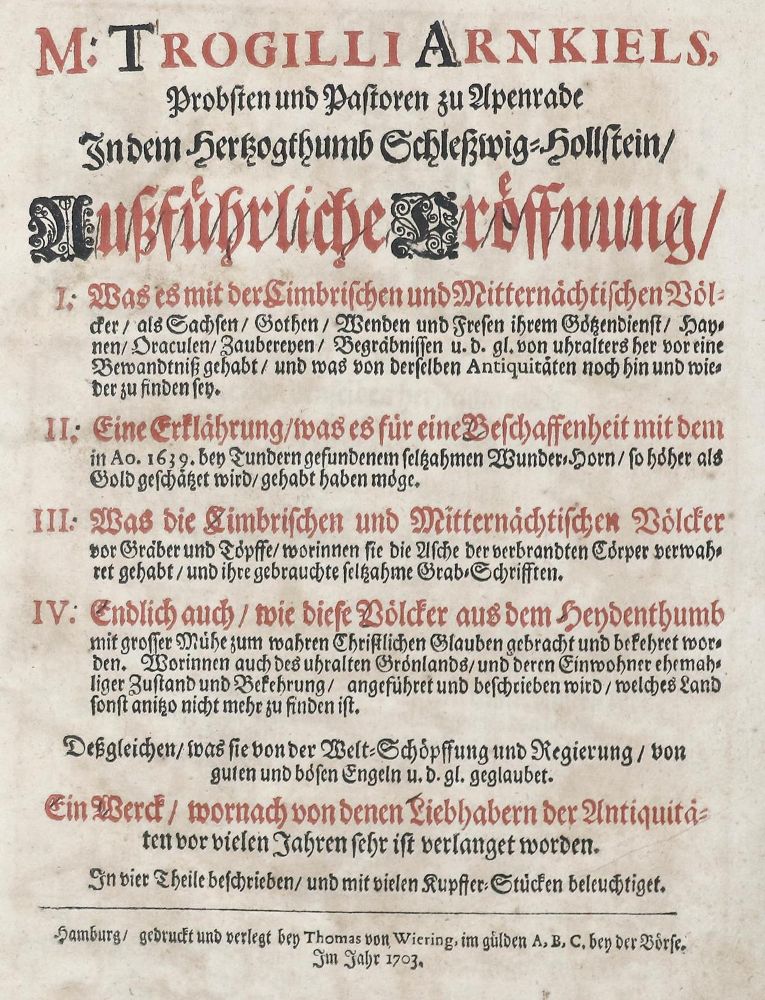 M: TROGILLI ARNKIELS,
Probsten und Pastoren zu Apenrade
In dem Hertzogthumb Schleßwig-Hollstein/
Außführliche Eröffnung/
I: Was es mit der Cimbrischen und Mitternächtischen Völ-
cker/ als Sachsen/ Gothen/ Wenden und Fresen ihrem Götzendienst/ Hay-
nen/ Oraculen/ Zaubereyen/ Begräbnissen u. d. gl. von uhralters her vor eine
Bewandtniß gehabt/ und was von derselben Antiquitäten noch hin und wie-
der zu finden sey.
II: Eine Erklährung/ was es für eine Beschaffenheit mit dem
in Ao. 1639. bey Tundern gefundenem seltzahmen Wunder-Horn/ so höher als
Gold geschätzet wird/ gehabt haben möge.
III: Was die Cimbrischen und Mitternächtischen Völcker
vor Gräber und Töpffe/ worinnen sie die Asche der verbrandten Cörper verwah-
ret gehabt/ und ihre gebrauchte seltzahme Grab-Schrifften.
IV: Endlich auch/ wie diese Völcker aus dem Heydenthumb
mit grosser Mühe zum wahren Christlichen Glauben gebracht und bekehret wor-
den. Worinnen auch des uhralten Grönlands/ und deren Einwohner ehemah-
liger Zustand und Bekehrung/ angeführet und beschrieben wird/ welches Land
sonst anitzo nicht mehr zu finden ist.
Deßgleichen/ was sie von der Welt-Schöpffung und Regierung/ von
guten und bösen Engeln u. d. gl. geglaubet.
Ein Werck/ wornach von denen Liebhabern der Antiquitä-
ten vor vielen Jahren sehr ist verlanget worden.
In vier Theile beschrieben/ und mit vielen Kupffer-Stücken beleuchtiget.
Hamburg/ gedruckt und verlegt bey Thomas von Wiering, im gülden A, B, C, bey der Börse.
Im Jahr 1703.